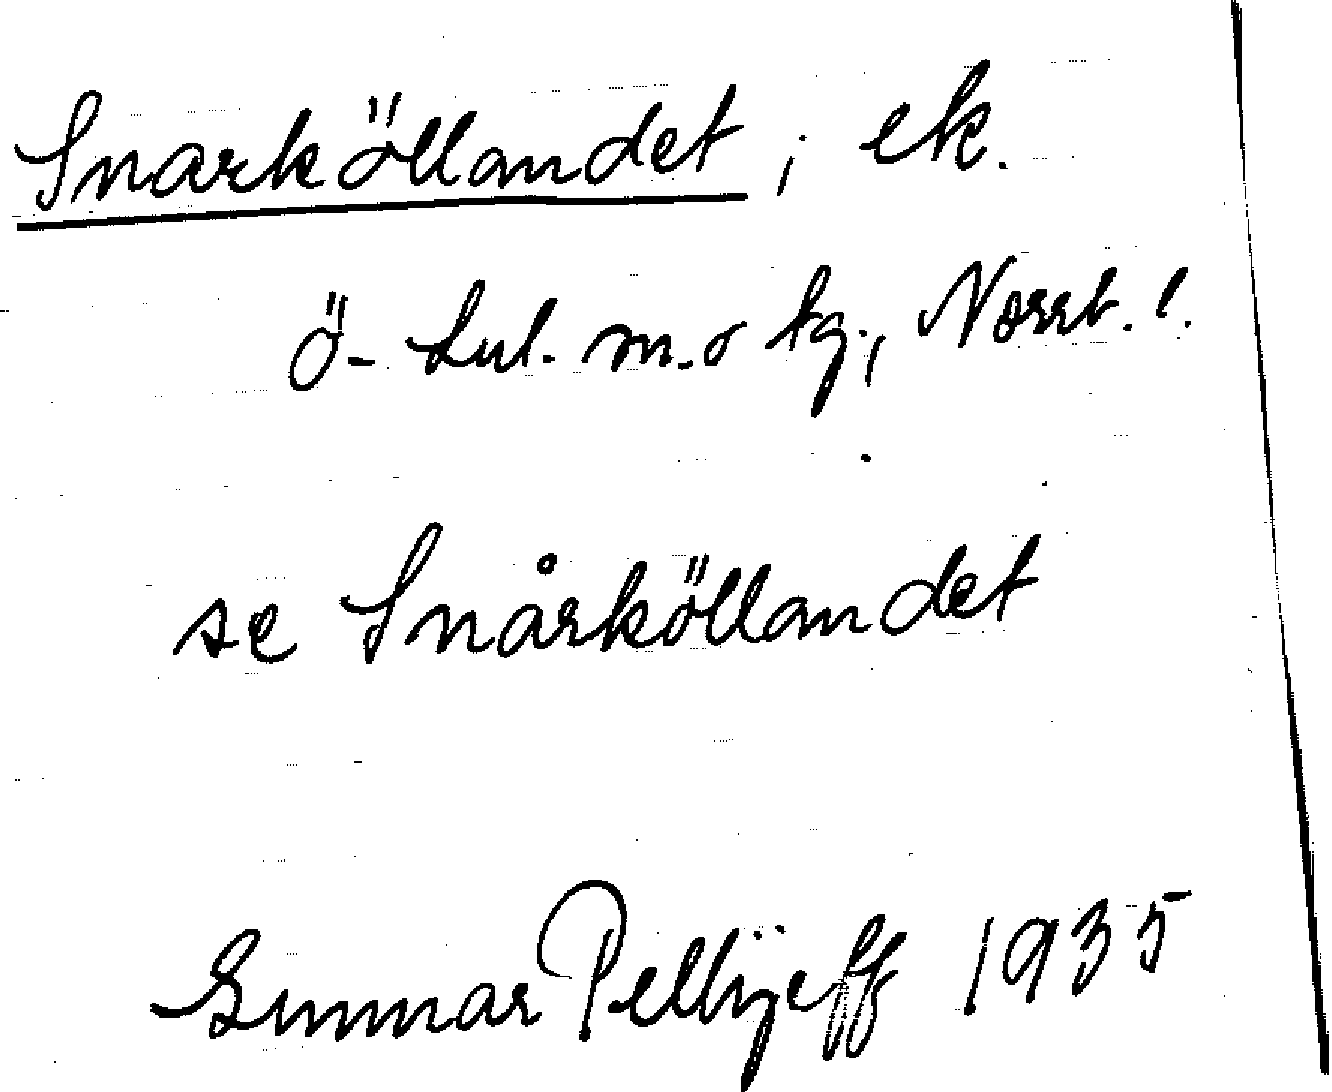 Snarköllandet, ek.
Ö-Lul. m. o tg., Norrb. l.
se Snårköllandet
Gunnar Pellijeff 1935